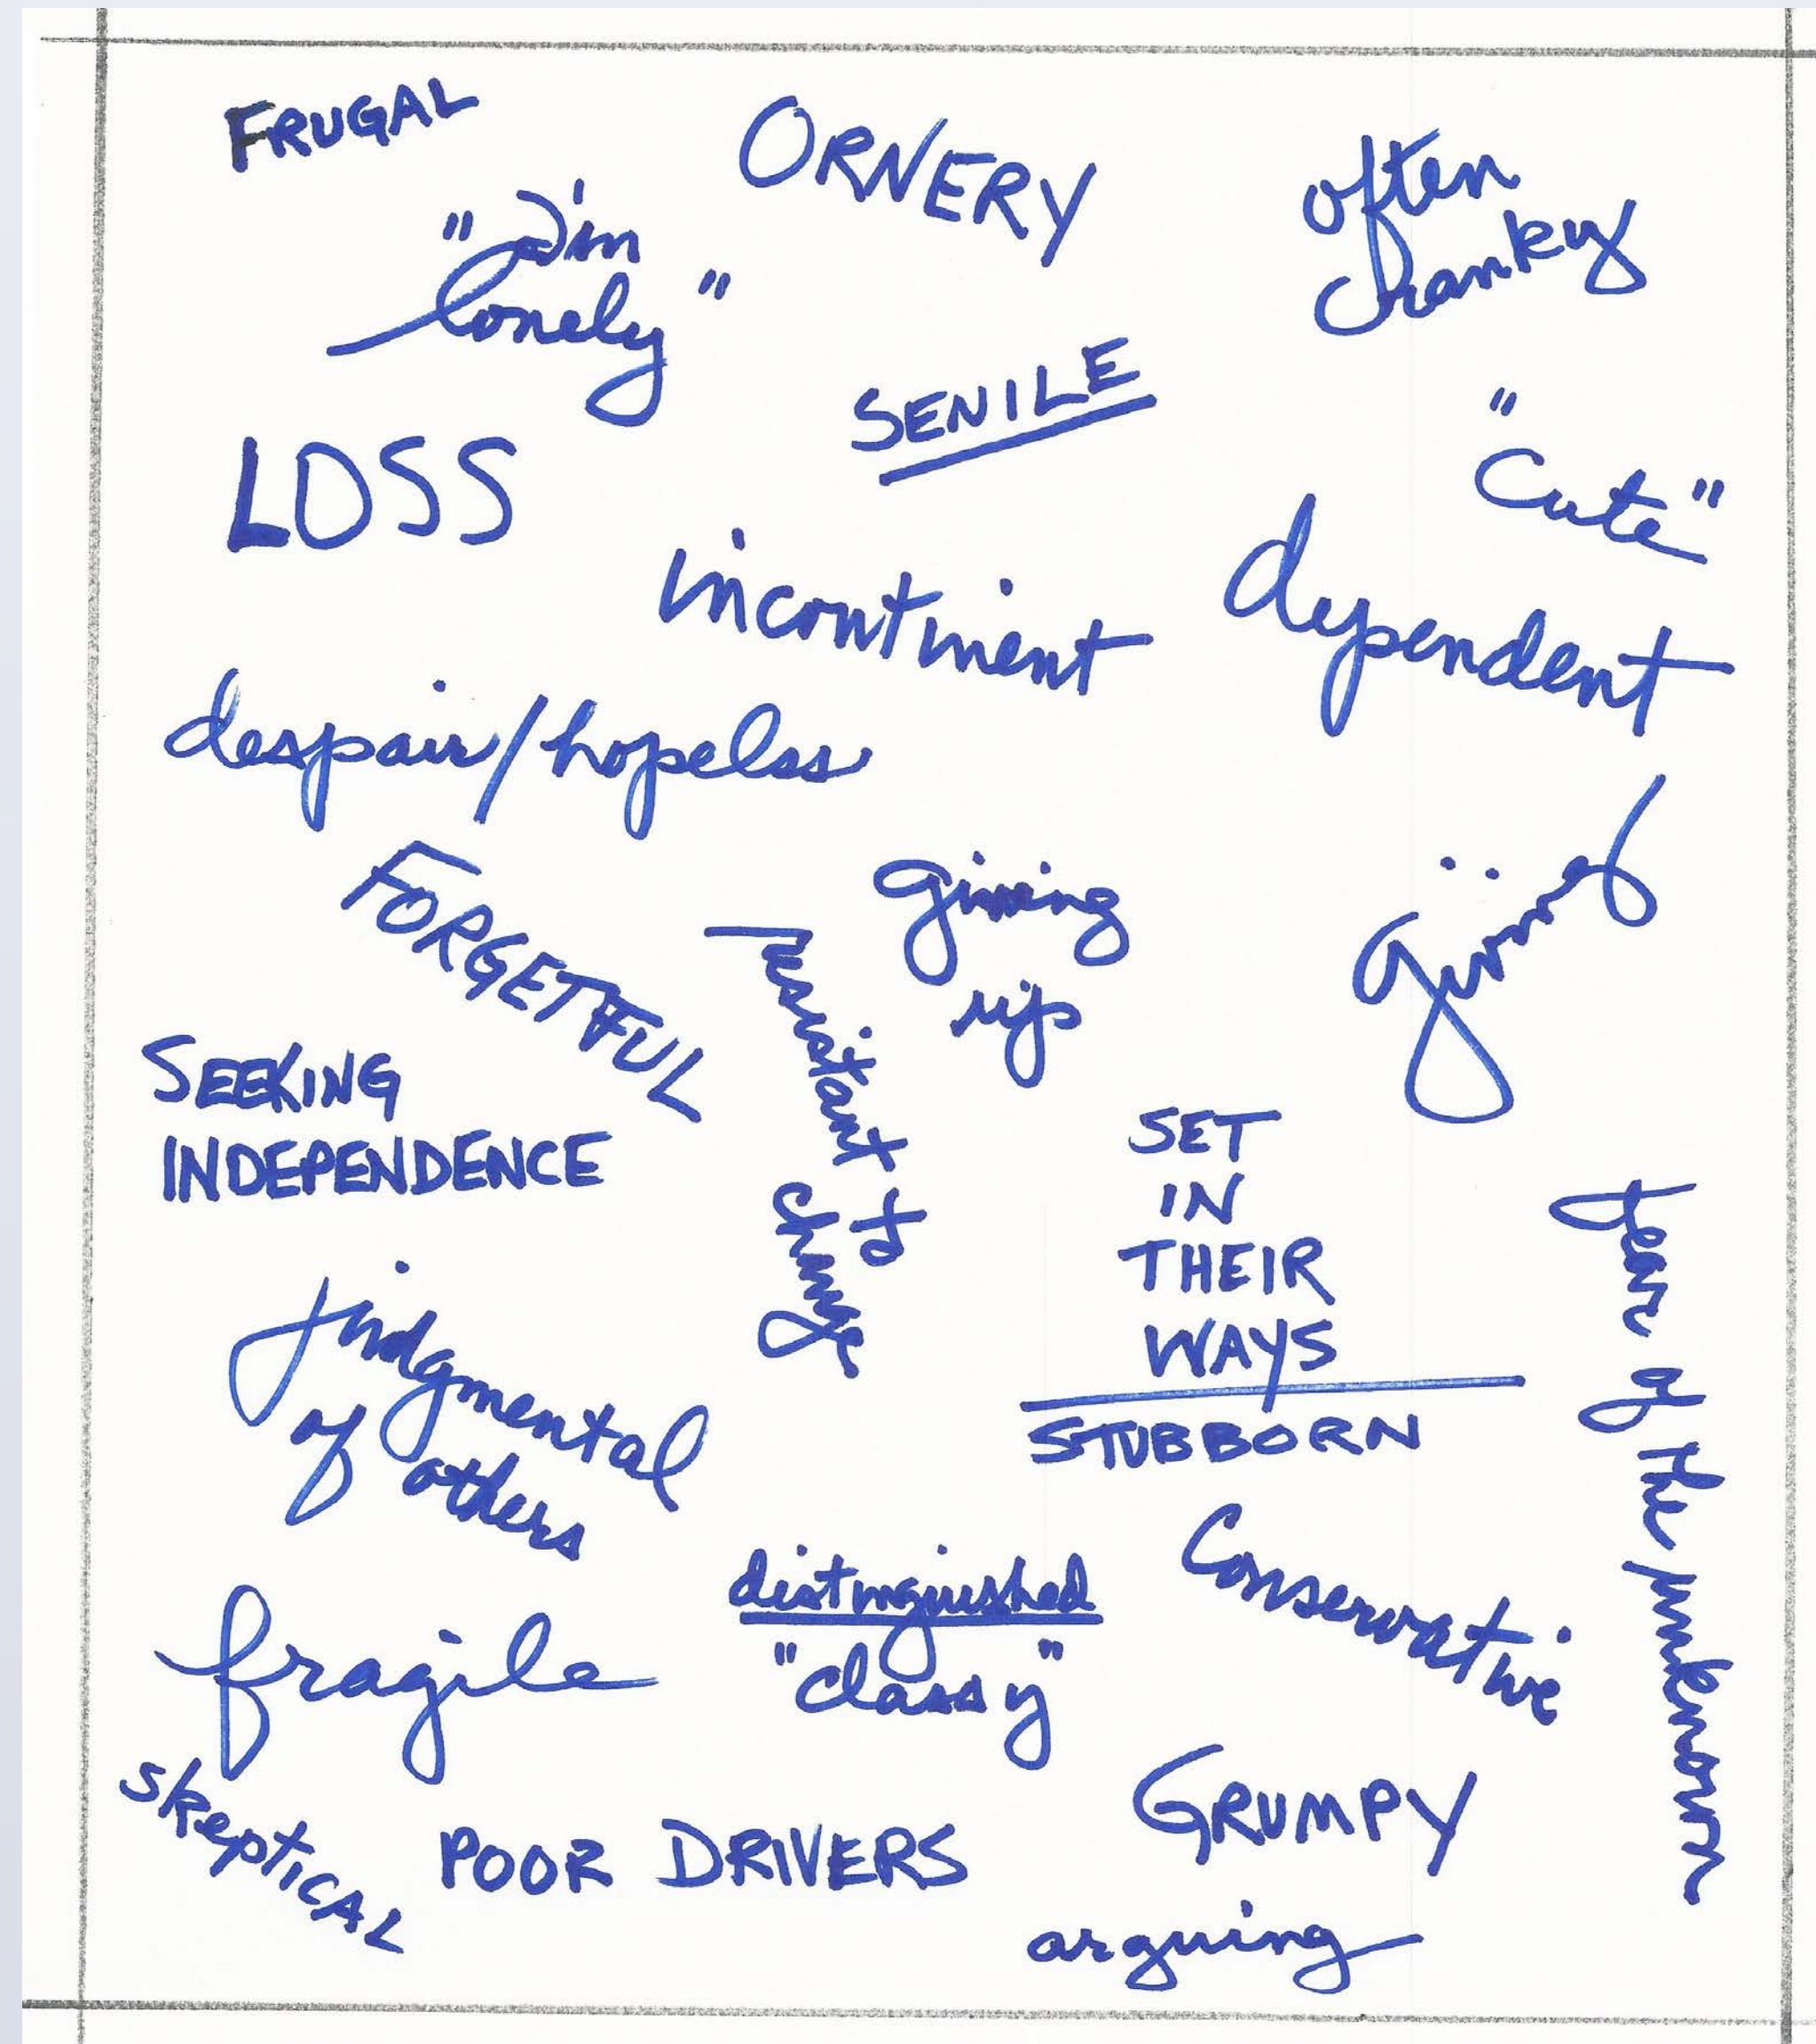 FRUGAL
ORNERY
often
cranky
"I'm
lonely"
SENILE
"cute"
LOSS
incontinent
dependent
despair/hopeless
FORGETFUL
giving
up
resistant to
change
SEEKING
INDEPENDENCE
SET
IN
THEIR
WAYS
STUBBORN
fear of the unknown
judgmental
of others
distinguished
"classy"
Conservative
fragile
skeptical
POOR DRIVERS
GRUMPY
arguing